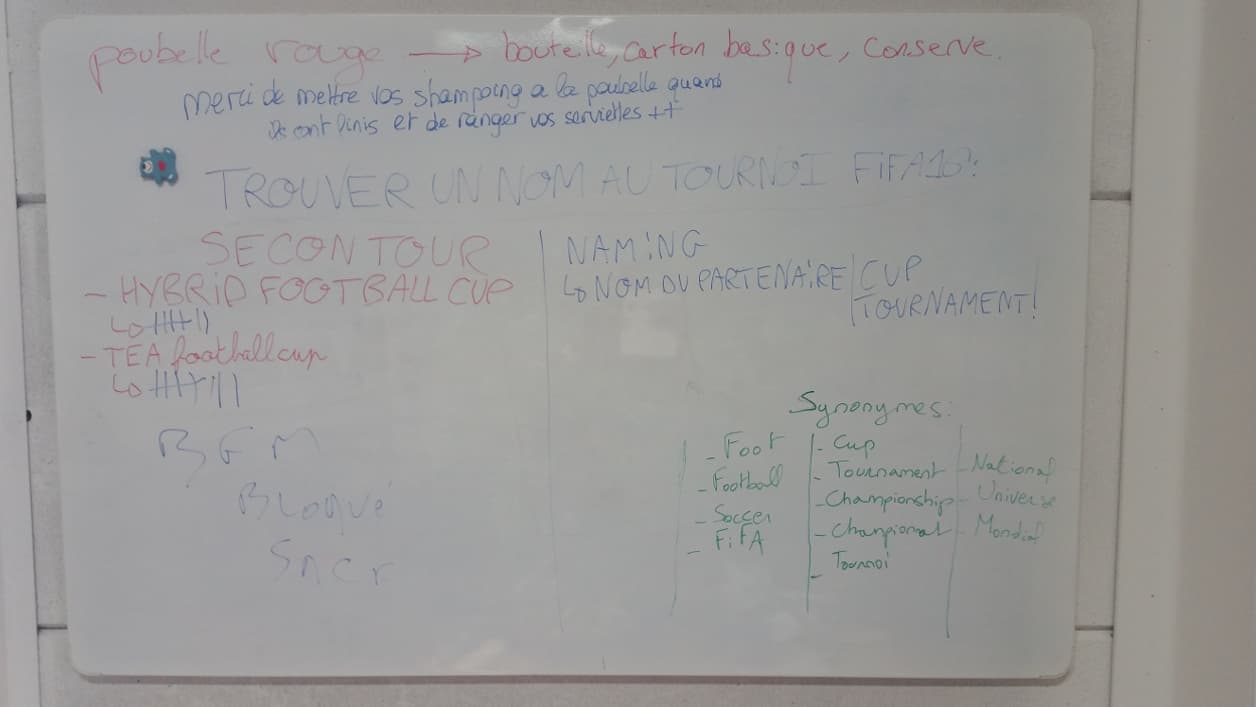 poubelle rouge → bouteille, carton basique, conserve.
merci de mettre vos shampoing a la poubelle quand
ils sont finis et de ranger vos serviettes ++
TROUVER UN NOM AU TOURNOI FIFA16:
SECON TOUR
- HYBRID FOOTBALL CUP
↳ |||| ||
- TEA football cup
↳ |||| |||
BGM
Bloqué
Sncr
NAMING
↳ NOM DU PARTENAIRE | CUP
TOURNAMENT!
Synonymes:
- Foot
- Football
- Soccer
- FiFA
- Cup
- Tournament
- Championship
- Championat
- Tournoi
- National
- Universe
- Mondial